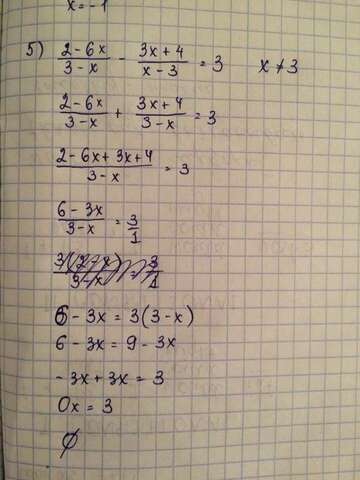 x = -1
5) (2-6x)/(3-x) - (3x+4)/(x-3) = 3    x ≠ 3
(2-6x)/(3-x) + (3x+4)/(3-x) = 3
(2-6x+3x+4)/(3-x) = 3
(6-3x)/(3-x) = 3/1
6 - 3x = 3(3-x)
6 - 3x = 9 - 3x
-3x + 3x = 3
0x = 3
∅